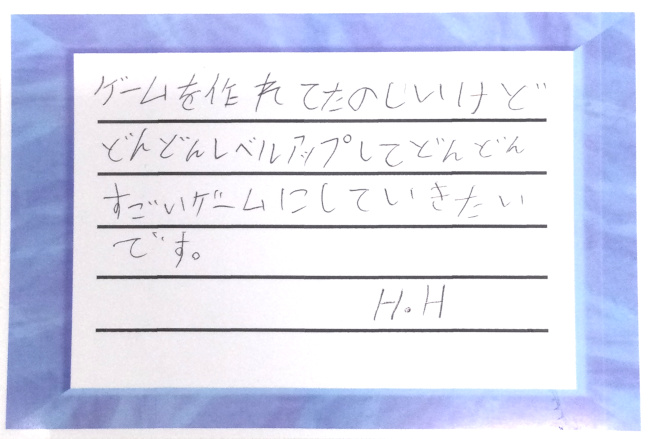 ゲームを作れてたのしいけど
どんどんレベルアップしてどんどん
すごいゲームにしていきたい
です。
H.H